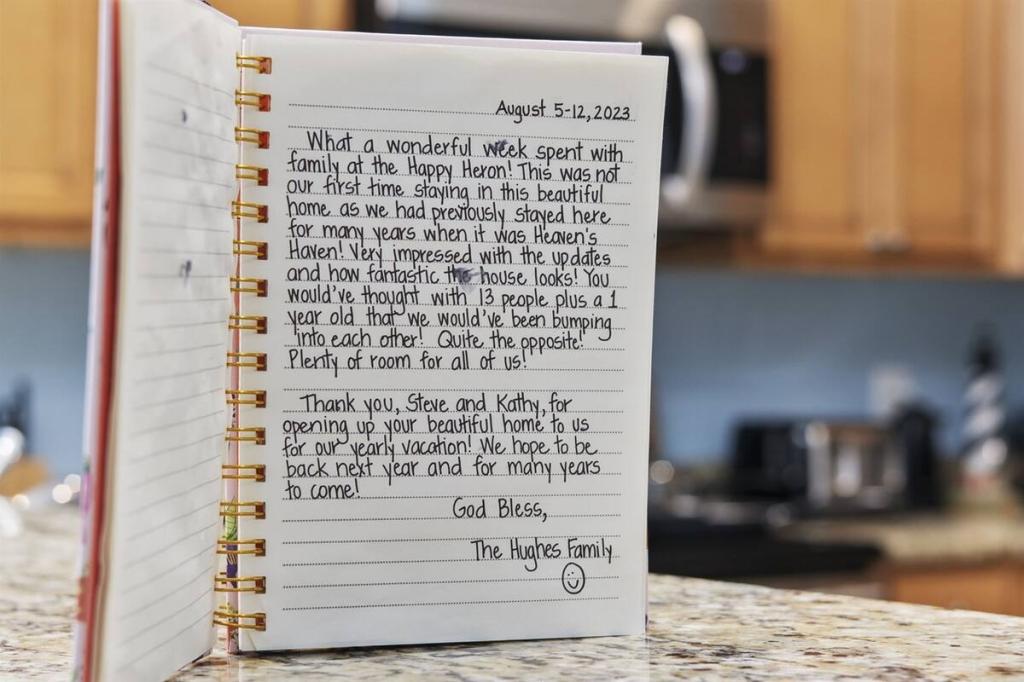 August 5-12, 2023
What a wonderful week spent with
family at the Happy Heron! This was not
our first time staying in this beautiful
home as we had previously stayed here
for many years when it was Heaven's
Haven! Very impressed with the updates
and how fantastic the house looks! You
would've thought with 13 people plus a 1
year old that we would've been bumping
into each other! Quite the opposite!
Plenty of room for all of us!
Thank you, Steve and Kathy, for
opening up your beautiful home to us
for our yearly vacation! We hope to be
back next year and for many years
to come!
God Bless,
The Hughes Family